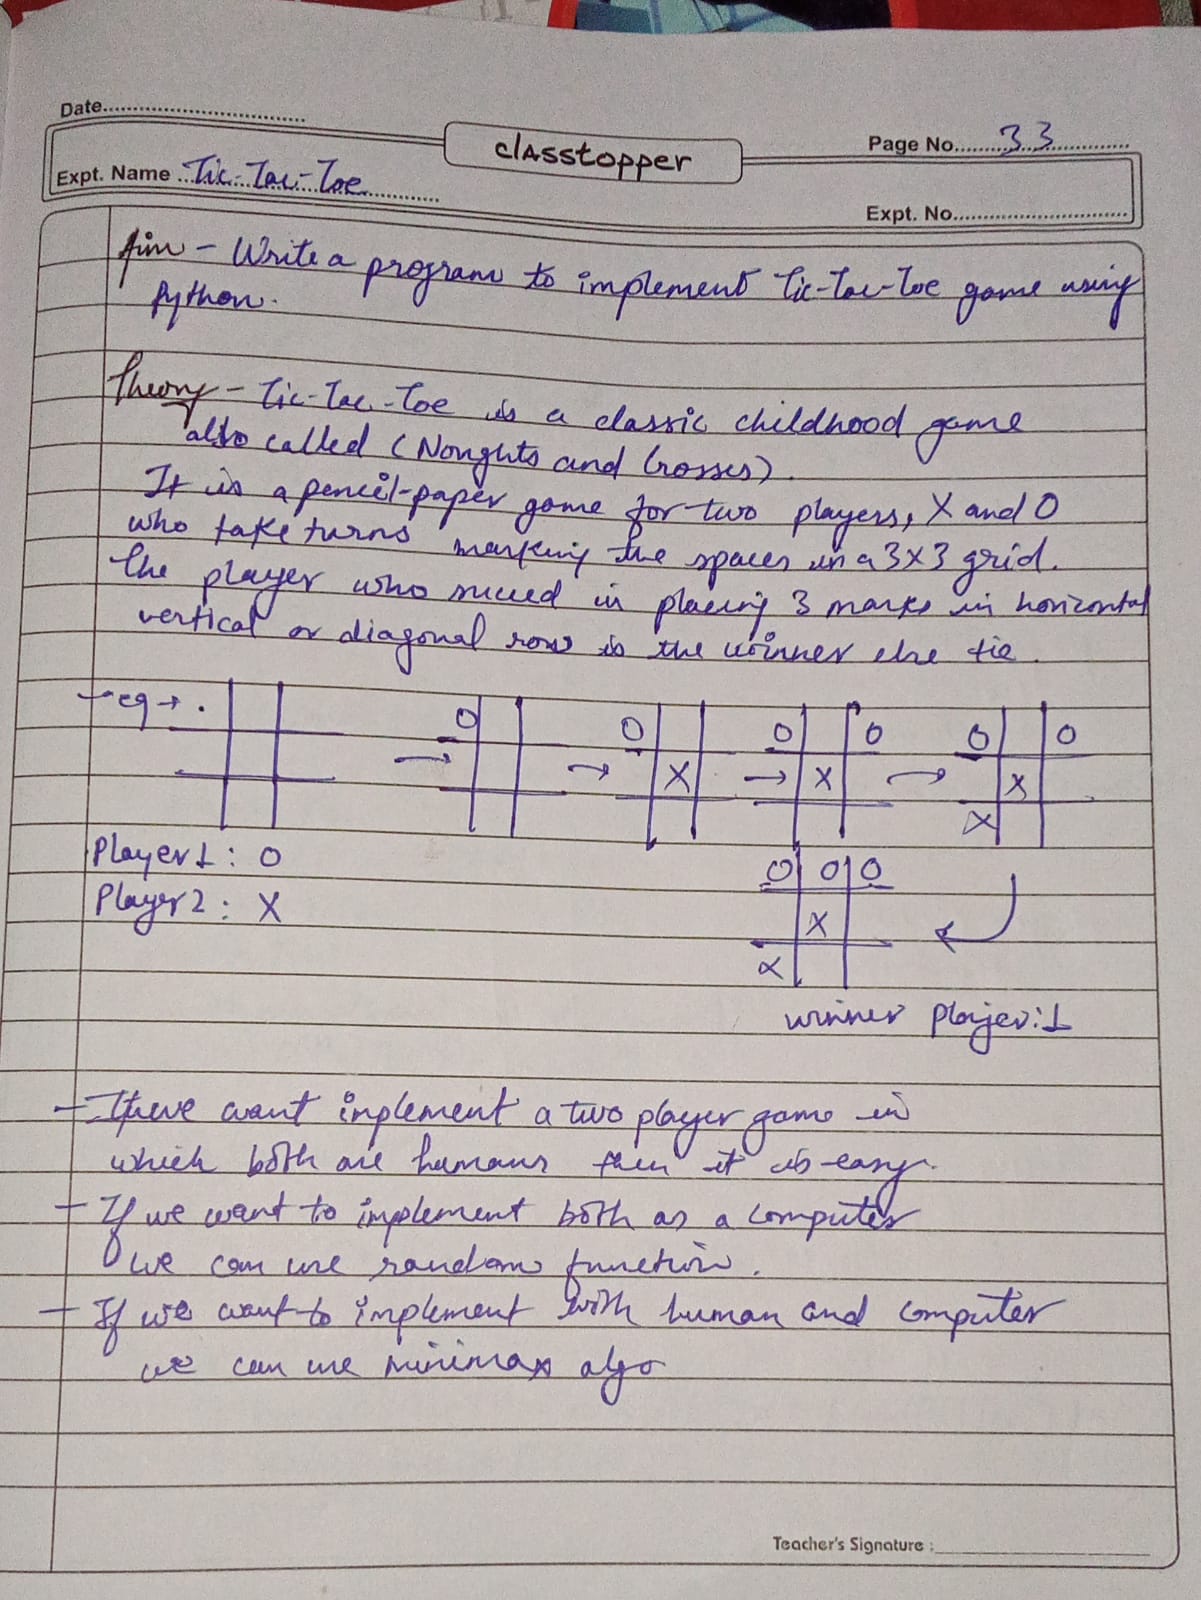 Date
classtopper
Page No. 33
Expt. Name Tic-Tac-Toe
Expt. No.
Aim - Write a program to implement Tic-Tac-Toe game using
Python.
Theory - Tic-Tac-Toe is a classic childhood game
also called (Noughts and Crosses).
It is a pencil-paper game for two players, X and O
who take turns marking the spaces in a 3x3 grid.
The player who succeed in placing 3 marks in horizontal
vertical or diagonal row is the winner else tie.
eg → .
O → O X → O O X → O O X X
Player 1 : O
Player 2 : X
O O O
X
X
winner player:1
- If we want implement a two player game in
which both are humans then it is easy.
- If we want to implement both as a computer
we can use random function.
- If we want to implement with human and computer
we can use minimax algo
Teacher's Signature :